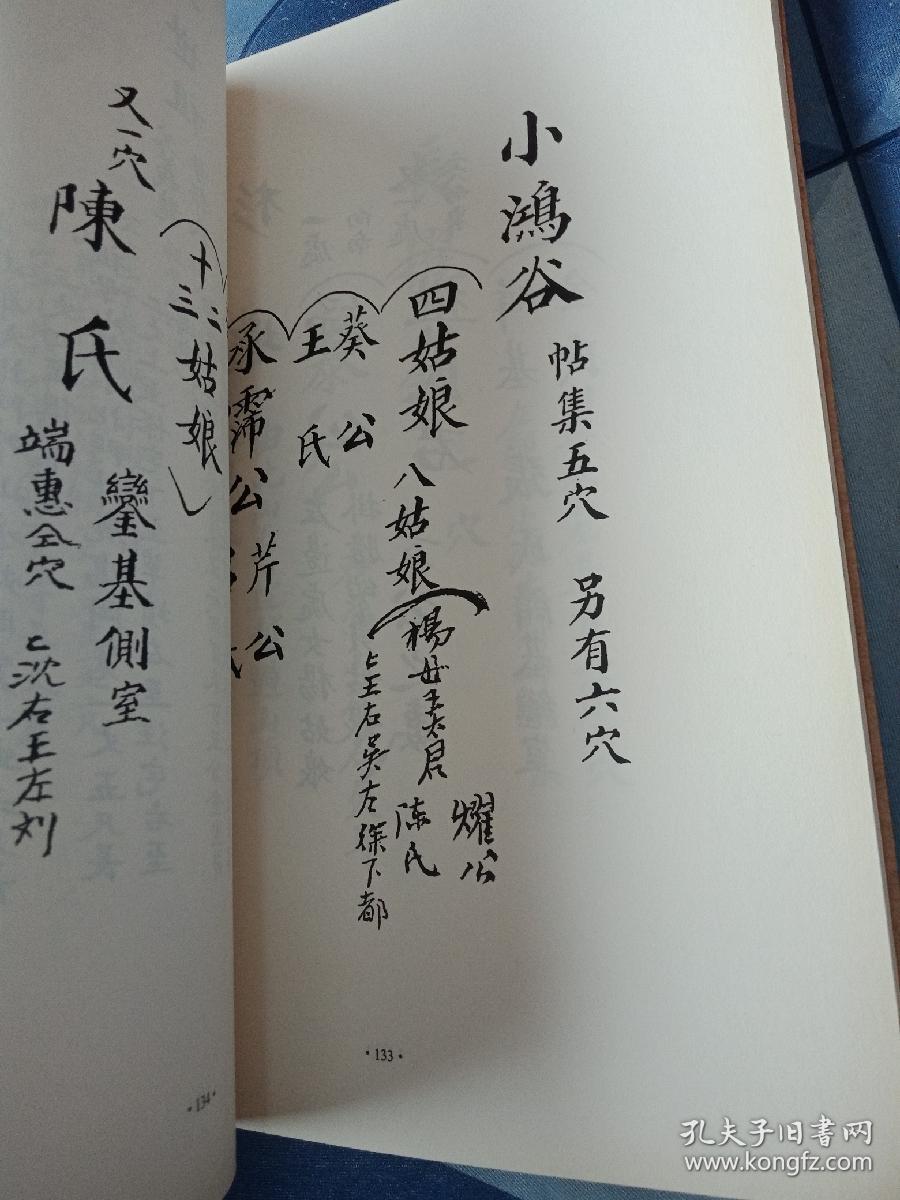 小鴻谷 帖集五穴 另有六穴
四姑娘 八姑娘
耀公
陈氏
上王右吳左徐下都
葵公
王氏
承霈公
芹公
十二
三姑娘
又一穴
陳氏
鑾基側室
端惠仝穴
上沈右王左刘
·133·
·134·
孔夫子旧书网
www.kongfz.com